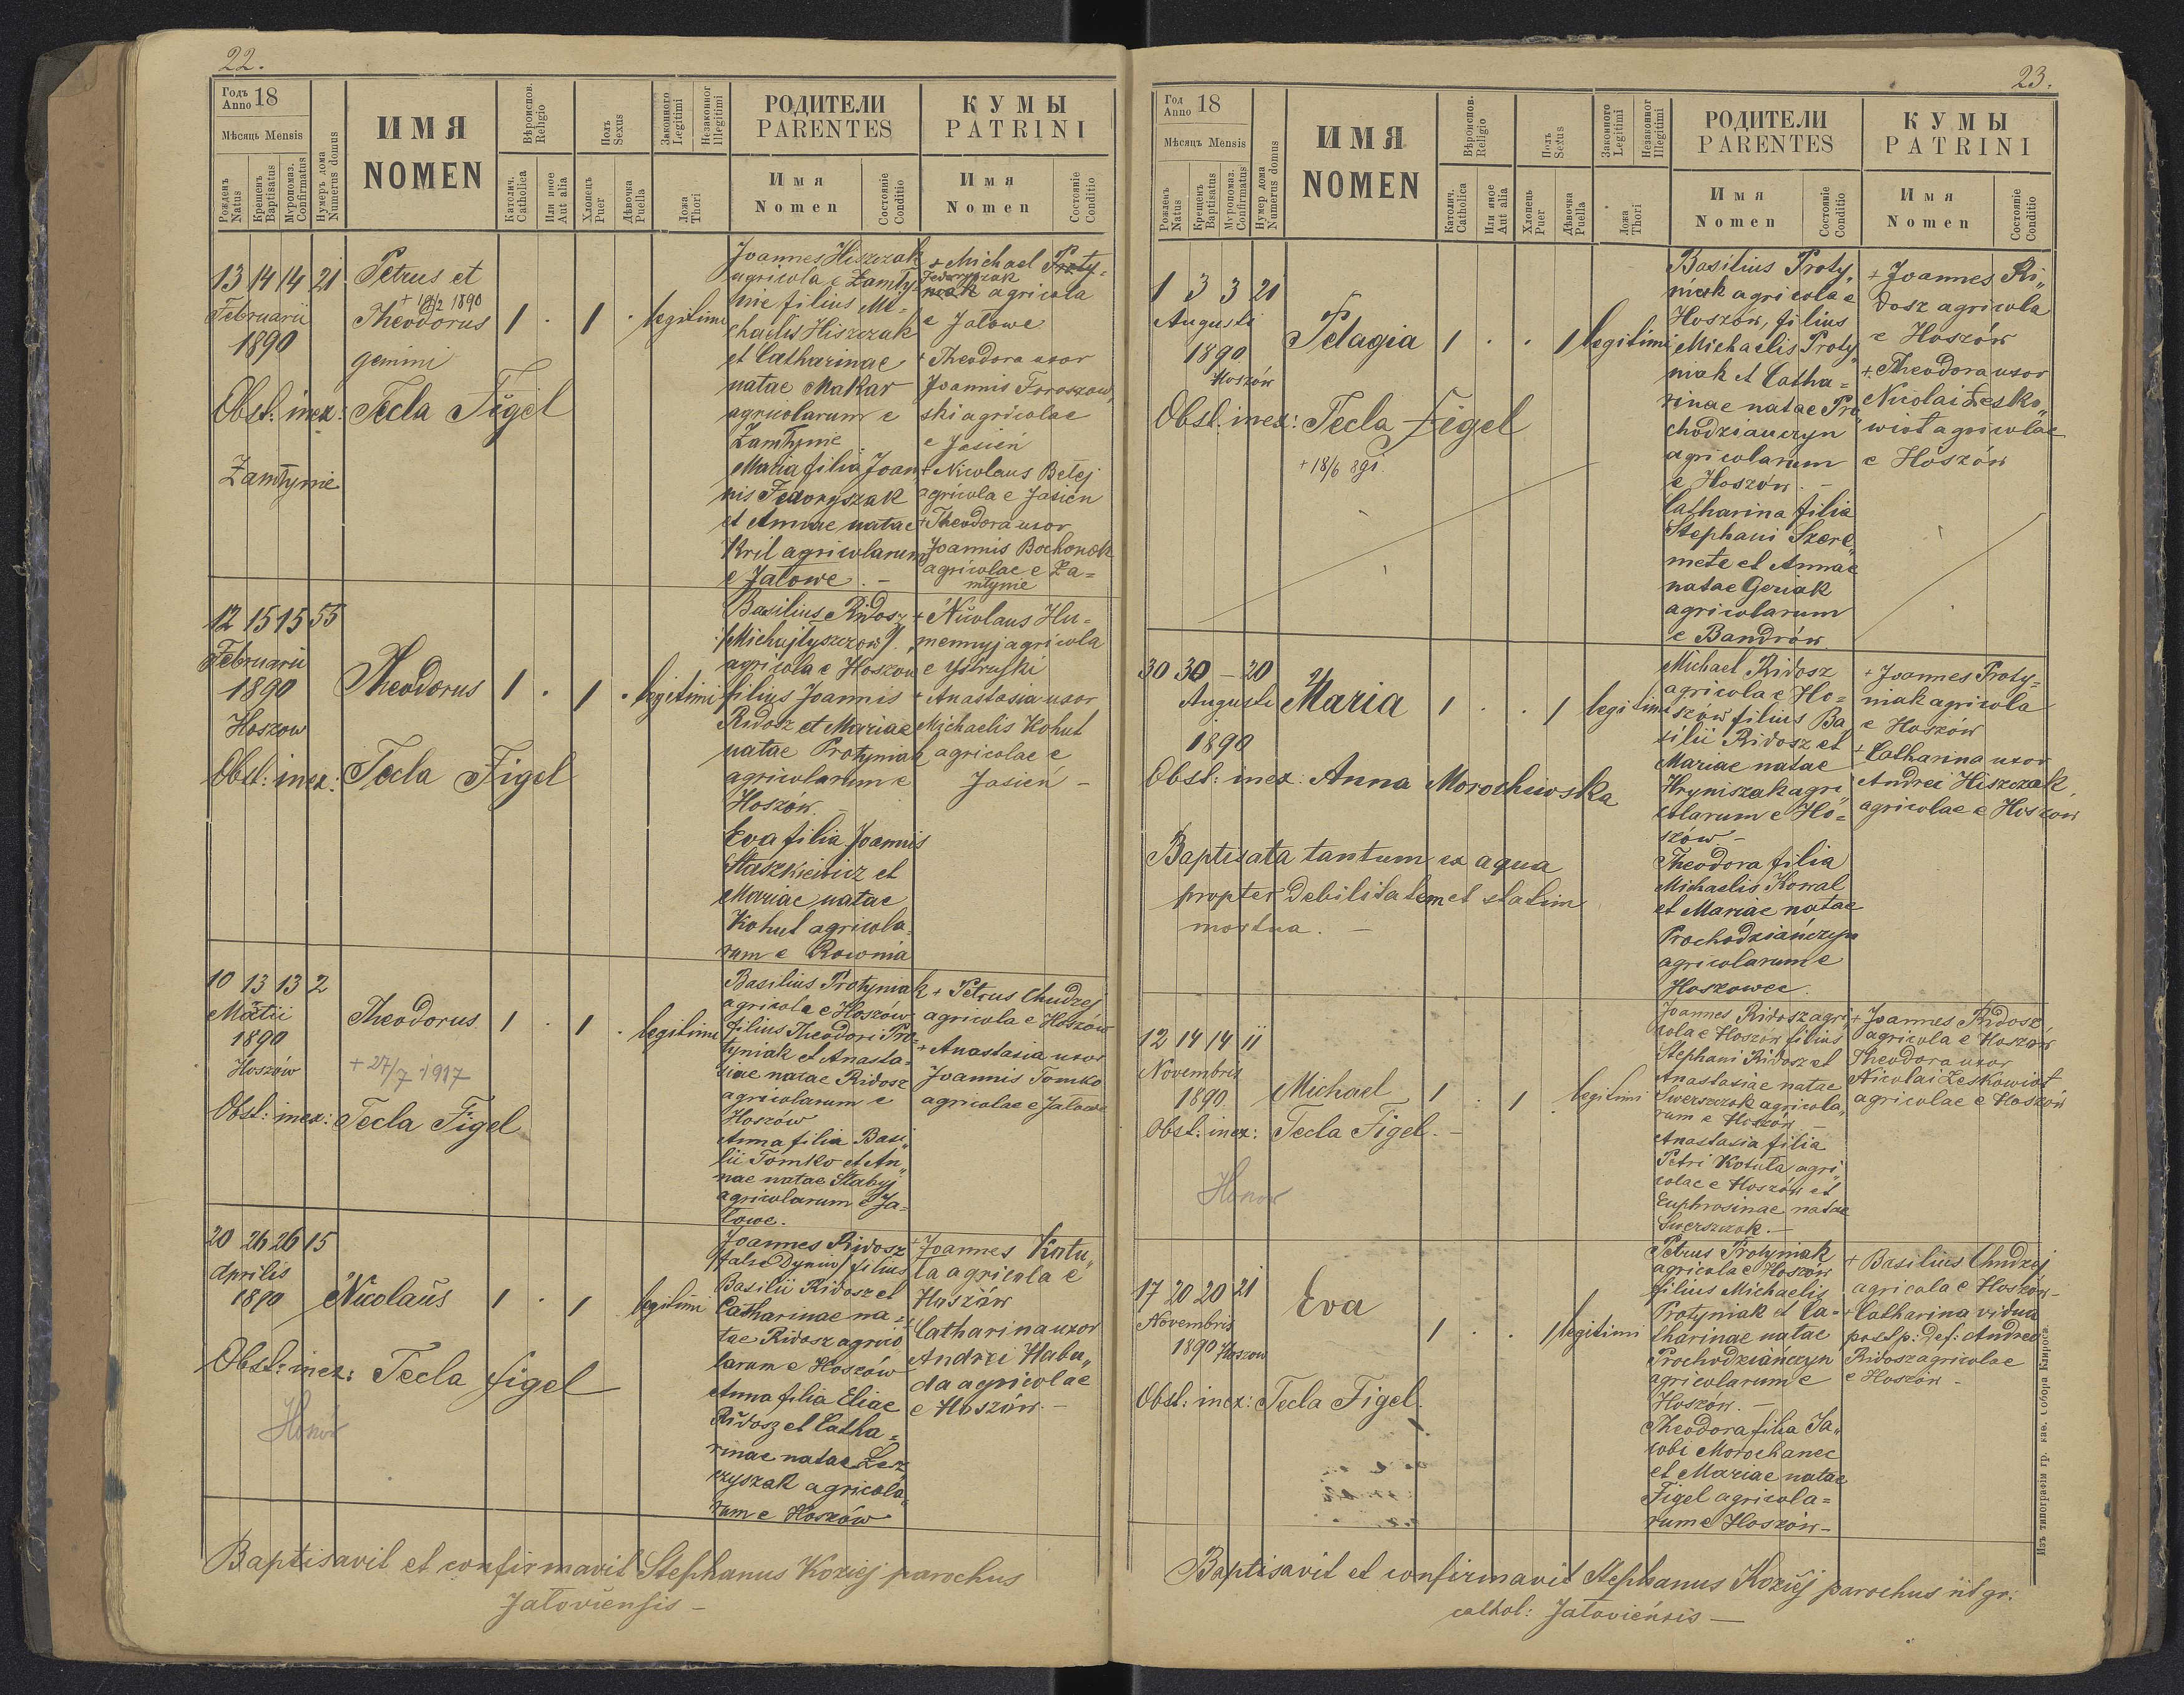 22.
Годъ
Anno 18
Мѣсяць Mensis
Рожденъ
Natus
Крещенъ
Baptisatus
Мѵропомаз.
Confirmatus
Нумеръ дома
Numerus domus
ИМЯ
NOMEN
Вѣроиспов.
Religio
Католич.
Catholica
Или иное
Aut alia
Полъ
Sexus
Хлопець
Puer
Дѣвочка
Puella
Законного
Legitimi
Незаконног
Illegitimi
Ложа
Thori
РОДИТЕЛИ
PARENTES
Имя
Nomen
Состояніе
Conditio
КУМЫ
PATRINI
Имя
Nomen
Состояніе
Conditio
13 14 14 21
Februarii
1890
Petrus et
Theodorus
gemini
1 . 1 . legitimi
Obst: inex: Tecla Figel
Zamłynie
Joannes Hiszczak
agricola e Zamły=
nie filius Mi=
chaelis Hiszczak
et Catharinae
natae Makar
agricolarum e
Zamłynie
Maria filia Joan
nis Fedoryszak
et Annae natae
Kril agricolarum
e Jałowe . –
+ Michael Proty=
Fedoryszak
niak agricola
e Jałowe
+ Theodora uxor
Joannis Toroszow,,
ski agricolae
e Jasień
+ Nicolaus Betej
agricola e Jasień
+ Theodora uxor
Joannis Bochonok
agricolae e Za=
młynie
12 15 15 55
Februarii
1890
Hoszow
Theodorus 1 . 1 . legitimi
Obst: inex: Tecla Figel
Basilius Ridosz
/Michajłyszczow/
agricola e Hoszow
filius Joannis
Ridosz et Mariae
natae Protyniak
agricolarum e
Hoszów. –
Eva filia Joannis
Staszkiewicz et
Mariae natae
Kohut agricola=
rum e Rownia
+ Nicolaus Hu=
mennyj agricola
e Ystryski
+ Anastasia uxor
Michaelis Kohut
agricolae e
Jasień –
10 13 13 2
Martii
1890
Hoszów
Theodorus 1 . 1 . legitimi
+ 27/7 1917
Obst: inex: Tecla Figel
Basilius Protyniak
agricola e Hoszów
filius Theodori Pro=
tyniak et Anasta=
siae natae Ridosz
agricolarum e
Hoszów
Anna filia Basi,,
lii Tomko et An,,
nae natae Słabyj
agricolarum e Ja=
łowe.
+ Petrus Chudzej
agricola e Hoszów
+ Anastasia uxor
Joannis Tomko
agricolae e Jałowe
20 26 26 15
Aprilis
1890
Nicolaus 1 . 1 legitimi
Obst: inex: Tecla Figel
Joannes Ridosz
/false Dyniw/ filius
Basilii Ridosz et
Catharinae na=
tae Ridosz agrico
larum e Hoszów
Anna filia Eliae
Ridosz et Catha=
rinae natae Lesz
czyszak agricola,,
rum e Hoszów
+ Joannes Kotu,,
la agricola e
Hoszów
+ Catharina uxor
Andrei Habu,,
da agricolae
e Hoszów. –
Baptisavit et confirmavit Stephanus Koziej parochus
Jałoviensis –
23.
Год
Anno 18
Мѣсяць Mensis
Рожденъ
Natus
Крещенъ
Baptisatus
Мѵропомаз.
Confirmatus
Нумер дома
Numerus domus
ИМЯ
NOMEN
Вѣроиспов.
Religio
Католич.
Catholica
Или иное
Aut alia
Полъ
Sexus
Хлопець
Puer
Дѣвочка
Puella
Законного
Legitimi
Незаконног
Illegitimi
Ложа
Thori
РОДИТЕЛИ
PARENTES
Имя
Nomen
Состояніе
Conditio
КУМЫ
PATRINI
Имя
Nomen
Состояніе
Conditio
1 3 3 21
Augusti
1890
Hoszów
Pelagia 1 . . 1 legitimi
Obst: inex: Tecla Figel
+ 18/6 891.
Basilius Proty,,
niak agricola e
Hoszów, filius
Michaelis Proty,,
niak et Catha=
rinae natae Pro
chodziańczyn
agricolarum
e Hoszów. –
Catharina filia
Stephani Szere,,
meta et Annae
natae Geriak
agricolarum
e Bandrów
+ Joannes Ri,,
dosz agricola
e Hoszów
+ Theodora uxor
Nicolai Lesko,,
wiat agricolae
e Hoszów
30 30 – 20
Augusti
1890
Maria 1 . . 1 legitimi
Obst: inex: Anna Morochiwska
Baptisata tantum ex aqua
propter debilitatem et statim
mortua. –
Michael Ridosz
agricola e Ho=
szów filius Ba
silii Ridosz et
Mariae natae
Hryniszak agri
colarum e Ho=
szów –
Theodora filia
Michaelis Kowal
et Mariae natae
Prochodziańczyn
agricolarum e
Hoszowec.
+ Joannes Proty=
niak agricola
e Hoszów
+ Catharina uxor
Andrei Hiszczak,
agricolae e Hoszow
12 14 14 11
Novembris
1890
Michael 1 . 1 . legitimi
Obst: inex: Tecla Figel. –
Joannes Ridosz agri,,
cola e Hoszów filius
Stephani Ridosz et
Anastasiae natae
Swerszczok agricola,,
rum e Hoszów –
Anastasia filia
Petri Kotuła agri,,
colae e Hoszów et
Euphrosinae natae
Swerszczok. –
+ Joannes Ridosz
agricola e Hoszów
Theodora uxor
Nicolai Leskowiat
agricolae e Hoszów
17 20 20 21
Novembris
1890 Hoszow
Eva 1 . . 1 legitimi
Obst: inex: Tecla Figel.
Petrus Protyniak
agricola e Hoszów
filius Michaelis
Protyniak et Ca=
tharinae natae
Prochodziańczyn
agricolarum e
Hoszów. –
Theodora filia Ja,,
cobi Morochanec
et Mariae natae
Figel agricola=
rum e Hoszów –
+ Basilius Chudzij
agricola e Hoszów –
+ Catharina vidua
post p: def: Andrea
Ridosz agricolae
e Hoszów –
Baptisavit et confirmavit Stephanus Koziej parochus rit gr:
cathol: Jałoviensis –